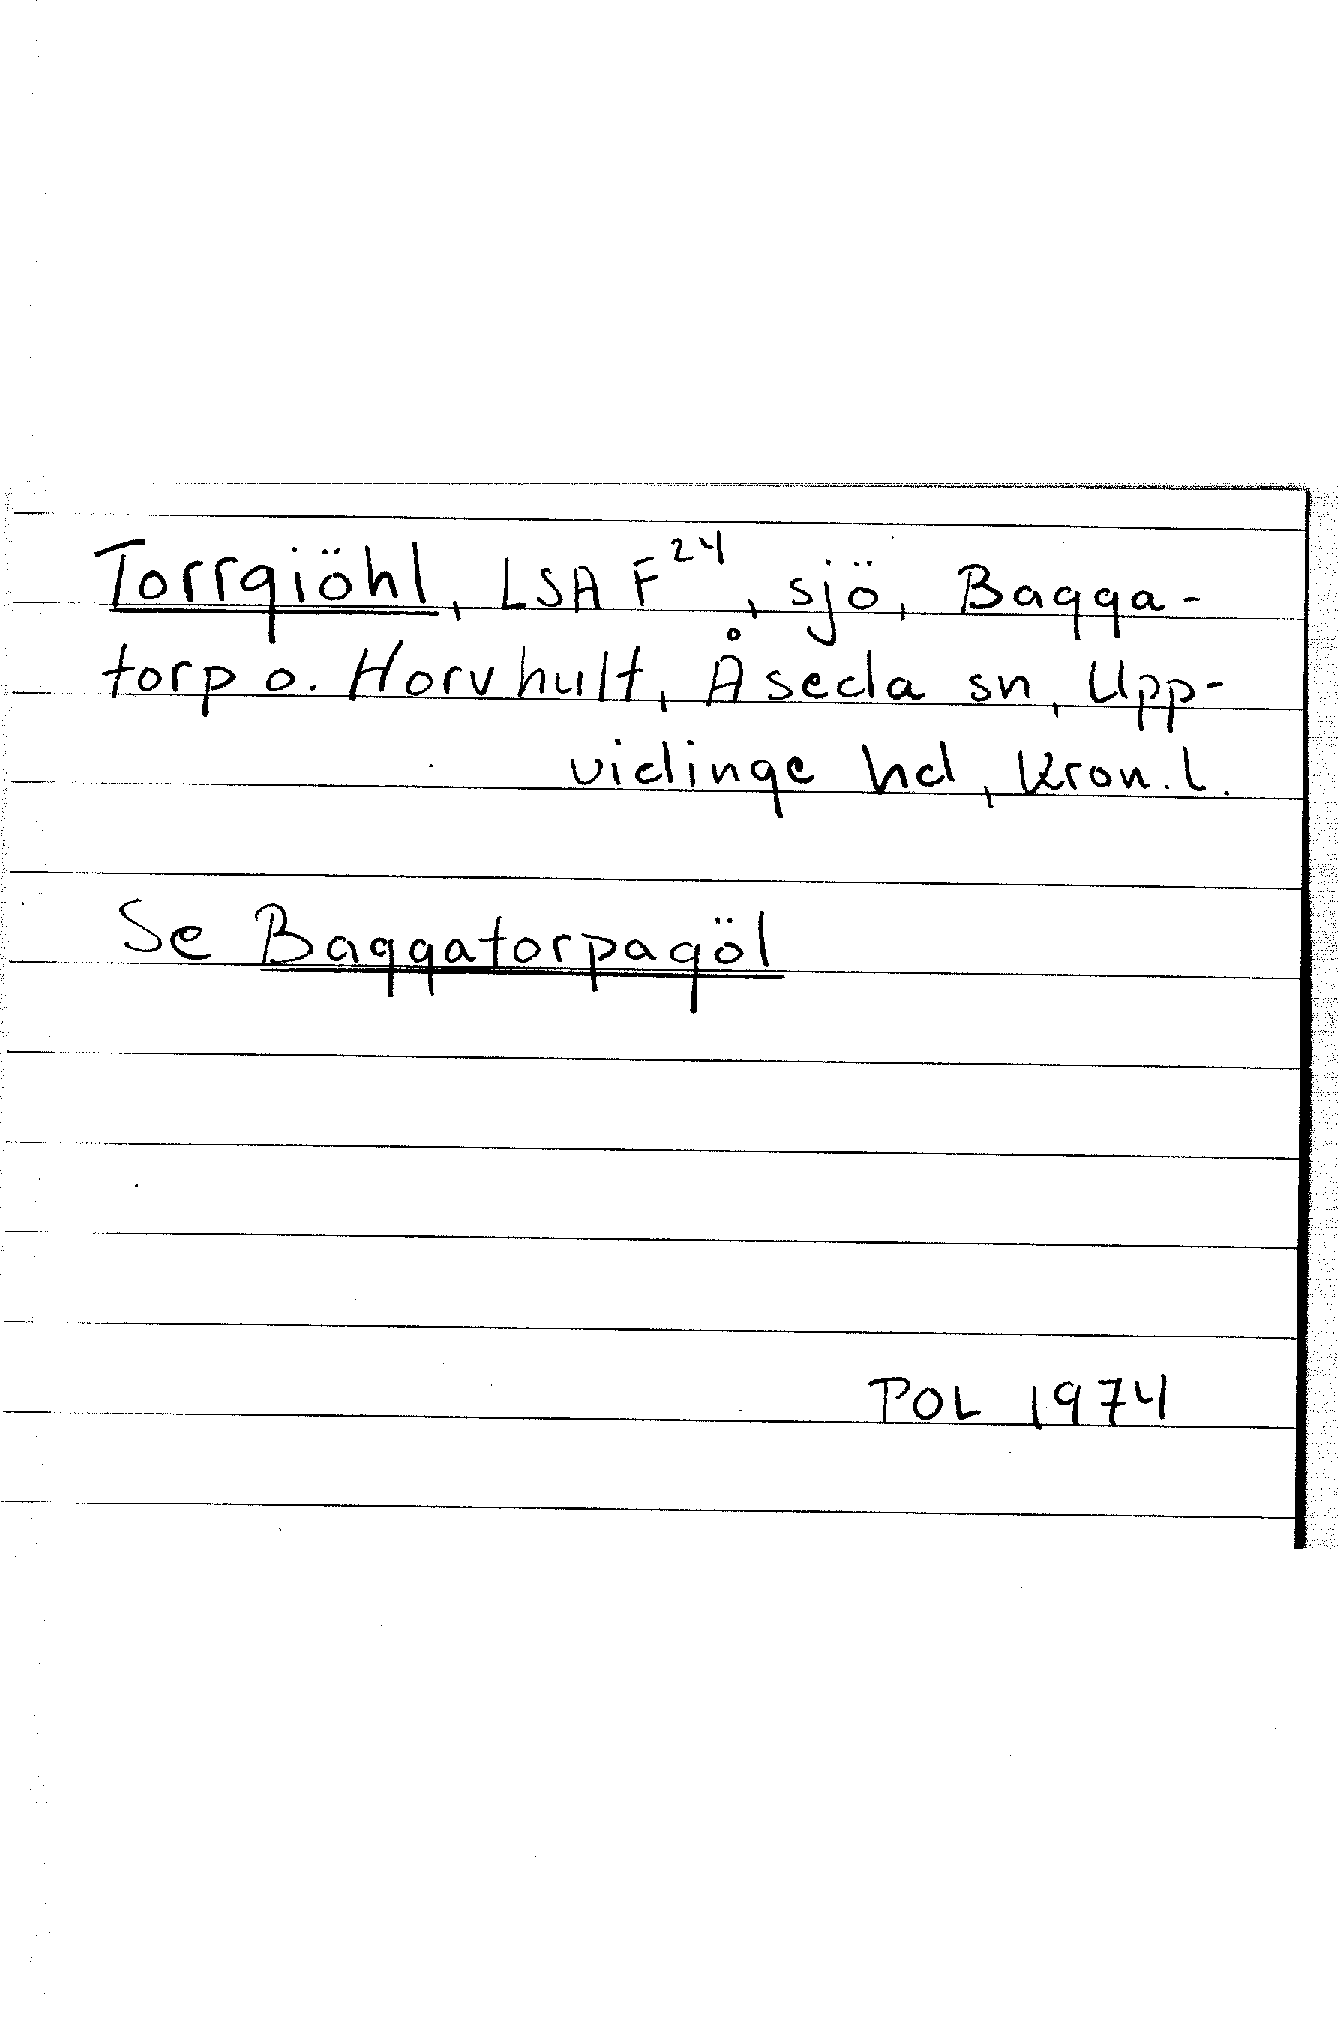 Torrgiöhl, LSA F²⁴, sjö, Bagga-
torp o. Horvhult, Åseda sn, Upp-
vidinge hd, Kron. l.
Se Baggatorpagöl
POL 1974